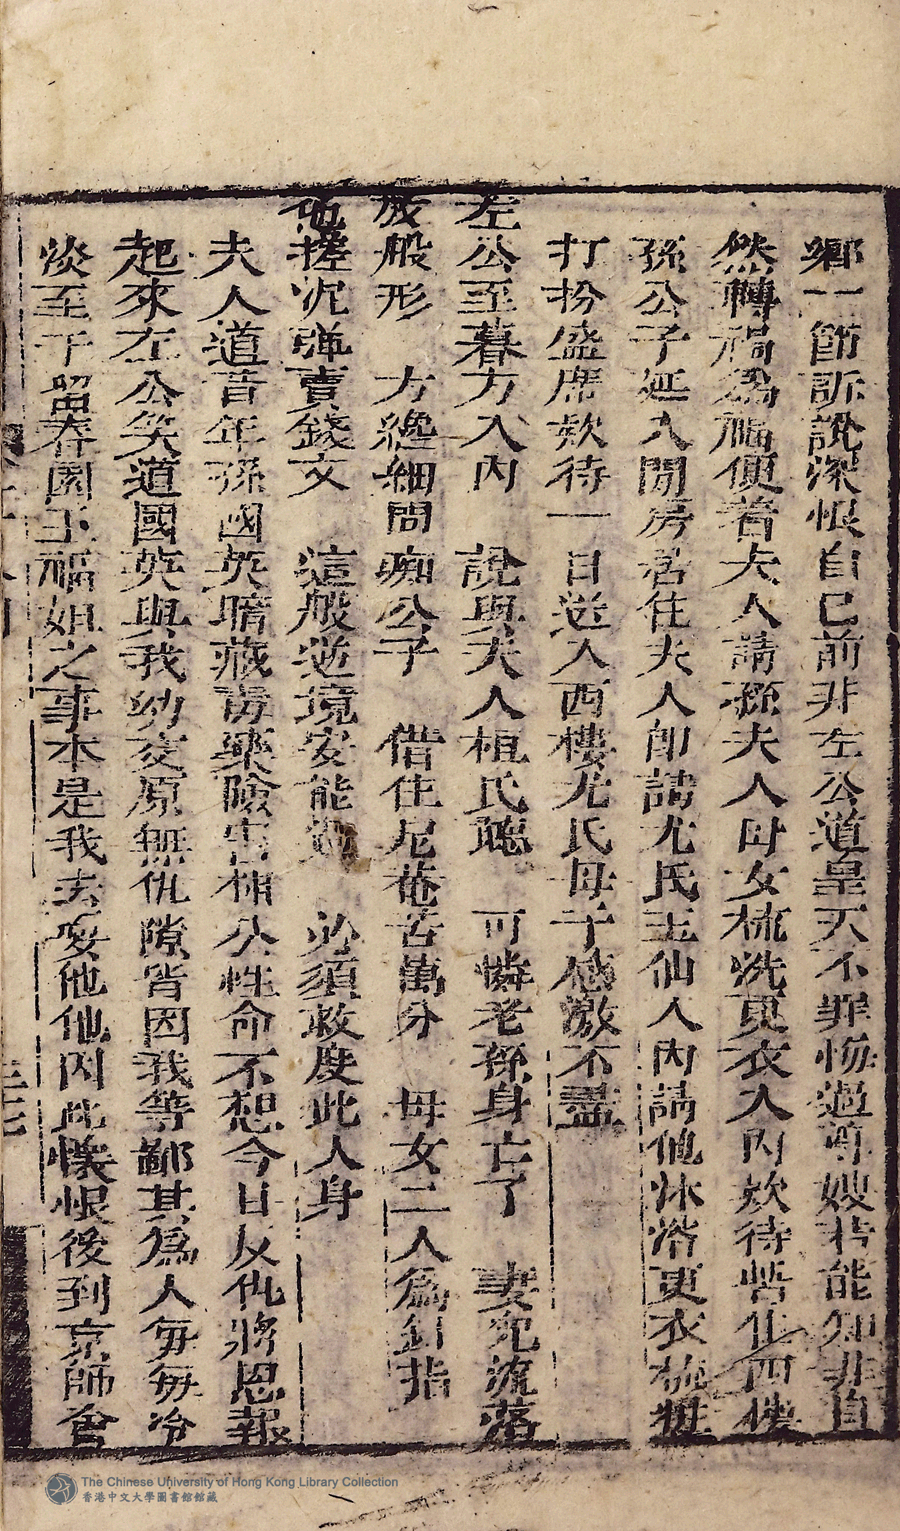 鄉一節訴說深恨自己前非左公道皇天不罪悔過尊嫂若能知非自
然轉禍為福便着夫人請孫夫人母女梳洗更衣入內欵待皆住西樓
孫公子延入閒房居住夫人即請尤氏玉仙人內請他沐浴更衣梳粧
打扮盛席欵待一日送入西樓尤氏母子感激不盡
左公至暮方入內 說與夫人桓氏聽 可憐老孫身亡了 妻兒流落
成般形 方纔細問痴公子 借住尼菴苦萬分 母女二人為針指
他搓泥彈賣錢文 這般逆境安能過 必須救度此人身
夫人道昔年孫國英暗藏毒藥險害相公性命不想今日反仇將恩報
起來左公笑道國英與我幼交原無仇隙皆因我等鄙其為人每每冷
淡至于留春園玉福姐之事本是我去娶他他因此懷恨後到京師會
三七
The Chinese University of Hong Kong Library Collection
香港中文大學圖書館館藏